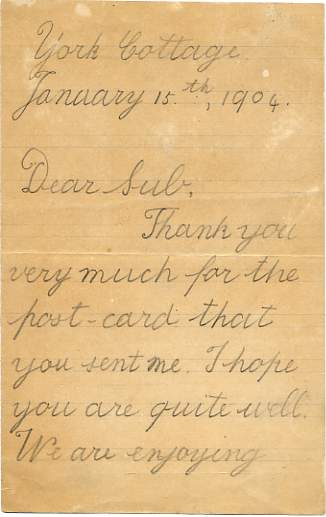 York Cottage.
January 15.th, 1904.
Dear Sub,
Thank you
very much for the
post-card that
you sent me. I hope
you are quite well.
We are enjoying